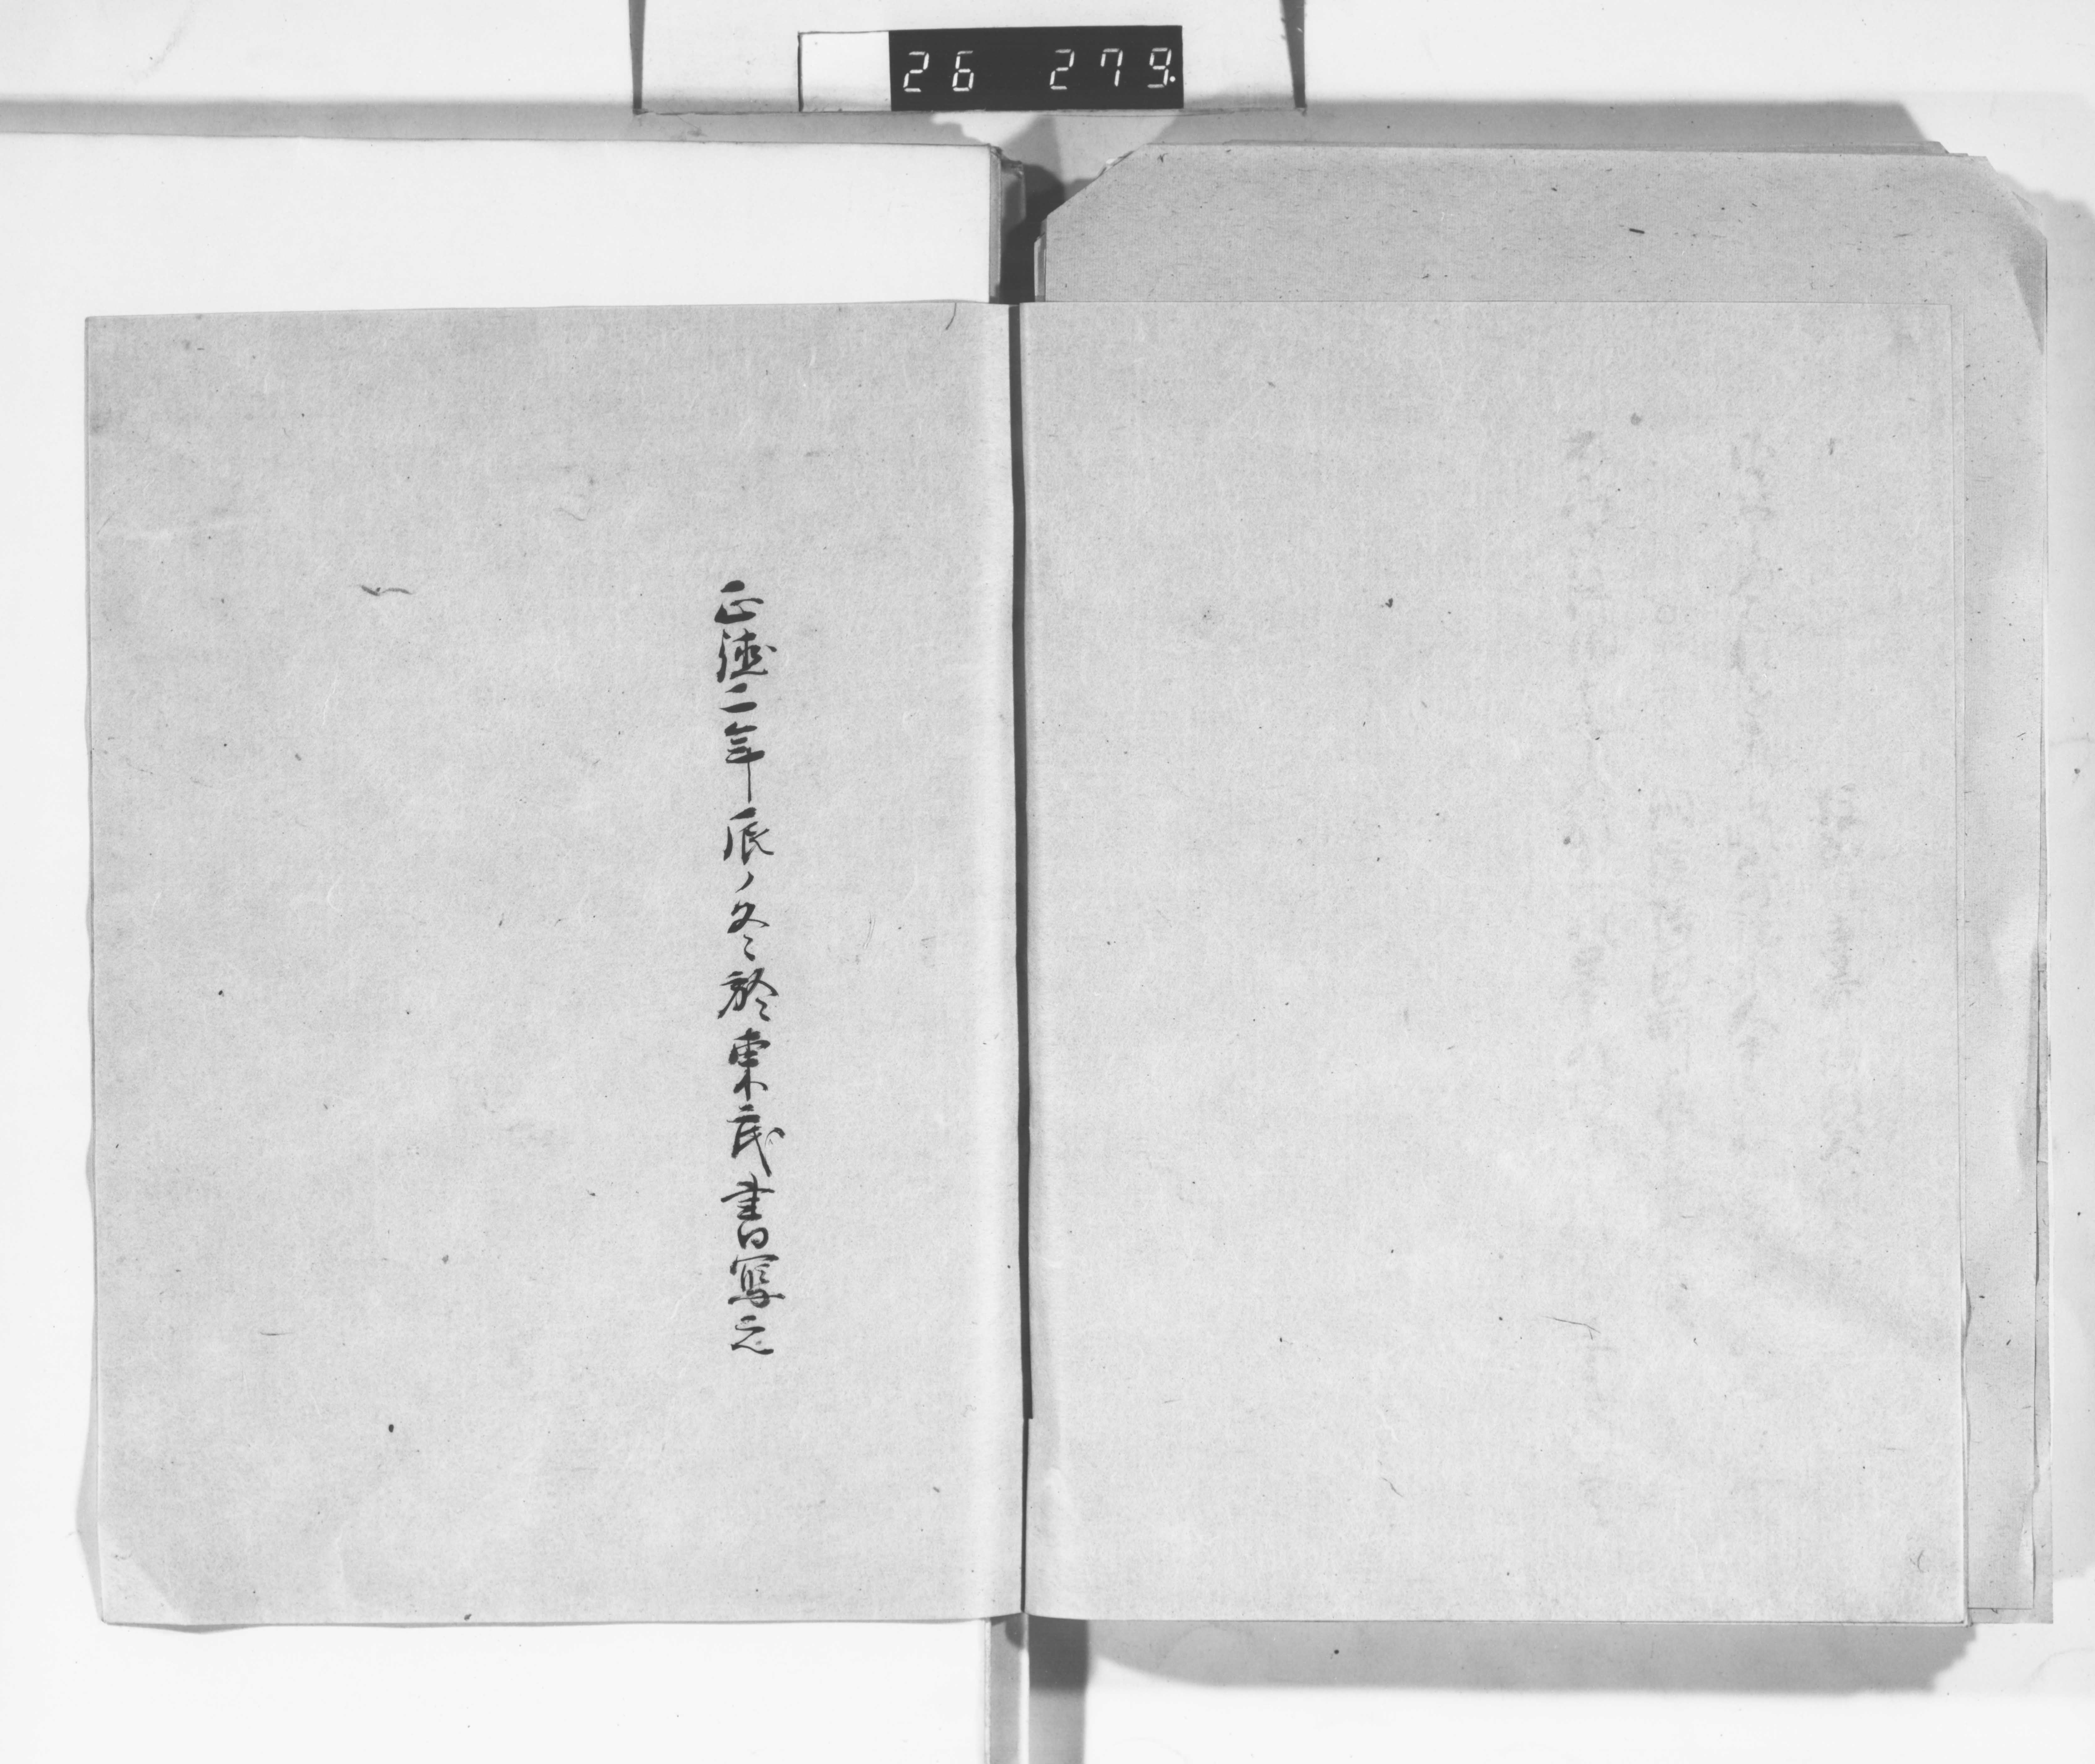 26 279.
正徳二年辰ノ冬於東武書写之